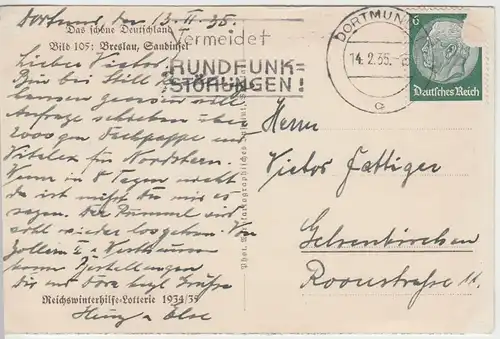 Dortmund den 13. II. 35.
Das schöne Deutschland
Bild 105: Breslau, Sandinsel
Lieber Victor.
Bin bei Still
Anfrage schieben über
2000 qm Dachpappe und
für Nordstern.
Wenn in 8 Tagen nicht
da ist mußt Du mir es
sagen. Der Rummel wird
wohl wieder losgehen. Von
Zollern I u.
kamen Bestellungen
Dir und Dora herzl. Grüße
Reichswinterhilfe-Lotterie 1934/35
Heinz u Else
Vermeidet
RUNDFUNK=
STÖRUNGEN!
DORTMUND
14. 2. 35.
6
Deutsches Reich
Herrn
Victor Fattiger
Gelsenkirchen
Roonstraße 11.